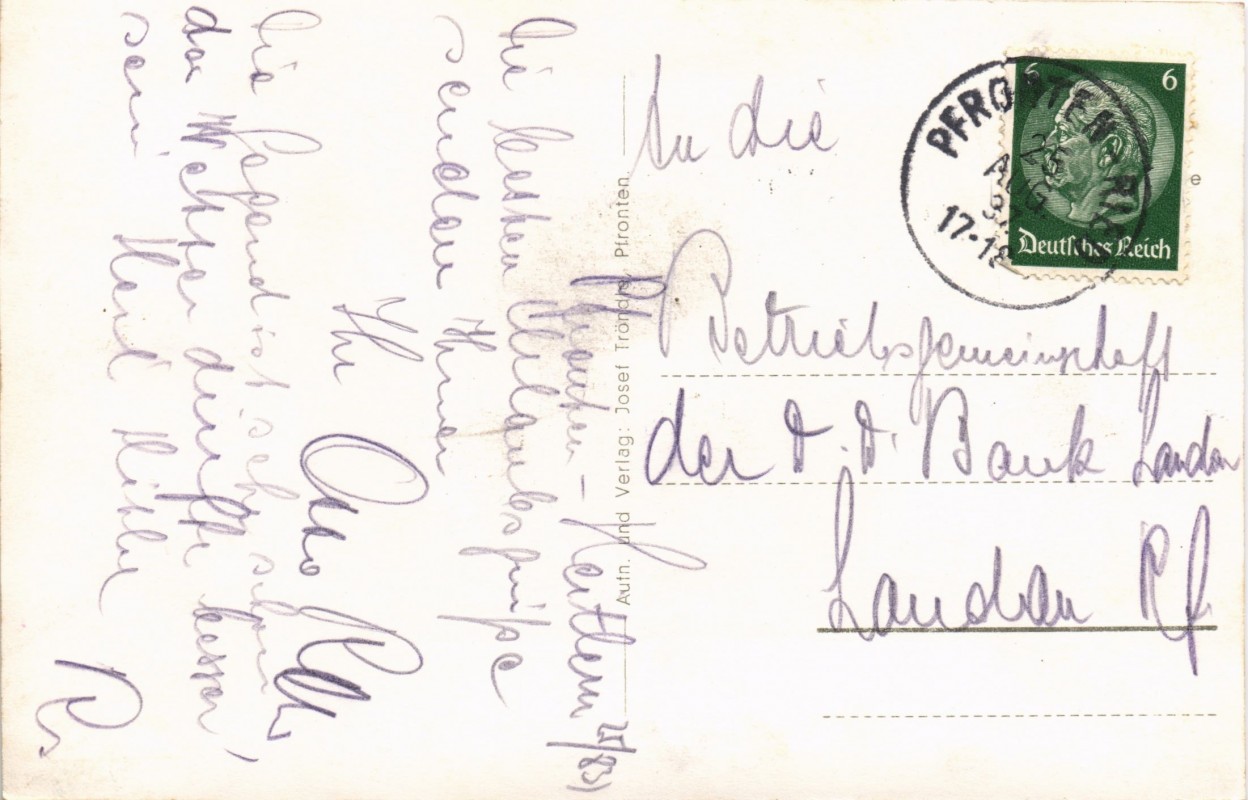 Pfronten – Heitlern
Die besten Urlaubsgrüße
senden Ihnen
Ihr Otto
Die Gegend ist sehr schön
das Wetter dürfte besser,
sein. Heil Hitler
An die
Betriebsgemeinschaft
der D. D. Bank Landau
Landau Pf
PFRONTEN-RIED
26
AUG.
17-18
6 6
Deutsches Reich
Autn. und Verlag: Josef Tröndle, Pfronten.
e